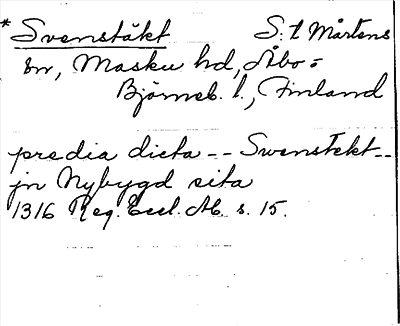 *Svenstäkt S:t Mårtens
sn, Masku hd, Åbo=
Björneb. l., Finland
predia dicta -- Swenstekt --
jn Nybygd sita
1316 Reg. Eccl. Ab. s. 15.